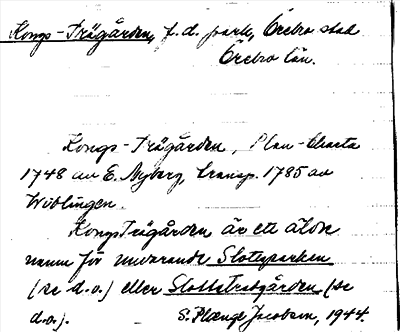 Kongs-Trägården, f.d. park, Örebro stad
Örebro län.
Kongs-Trägården, Plan-Charta
1748 av E. Nyberg, transp. 1785 av
Wiblingen.
Kongs Trägården är ett äldre
namn för nuvarande Slottsparken
(se d.o.) eller Slottsträdgården (se
d.o.). S. Jacobson, 1944.